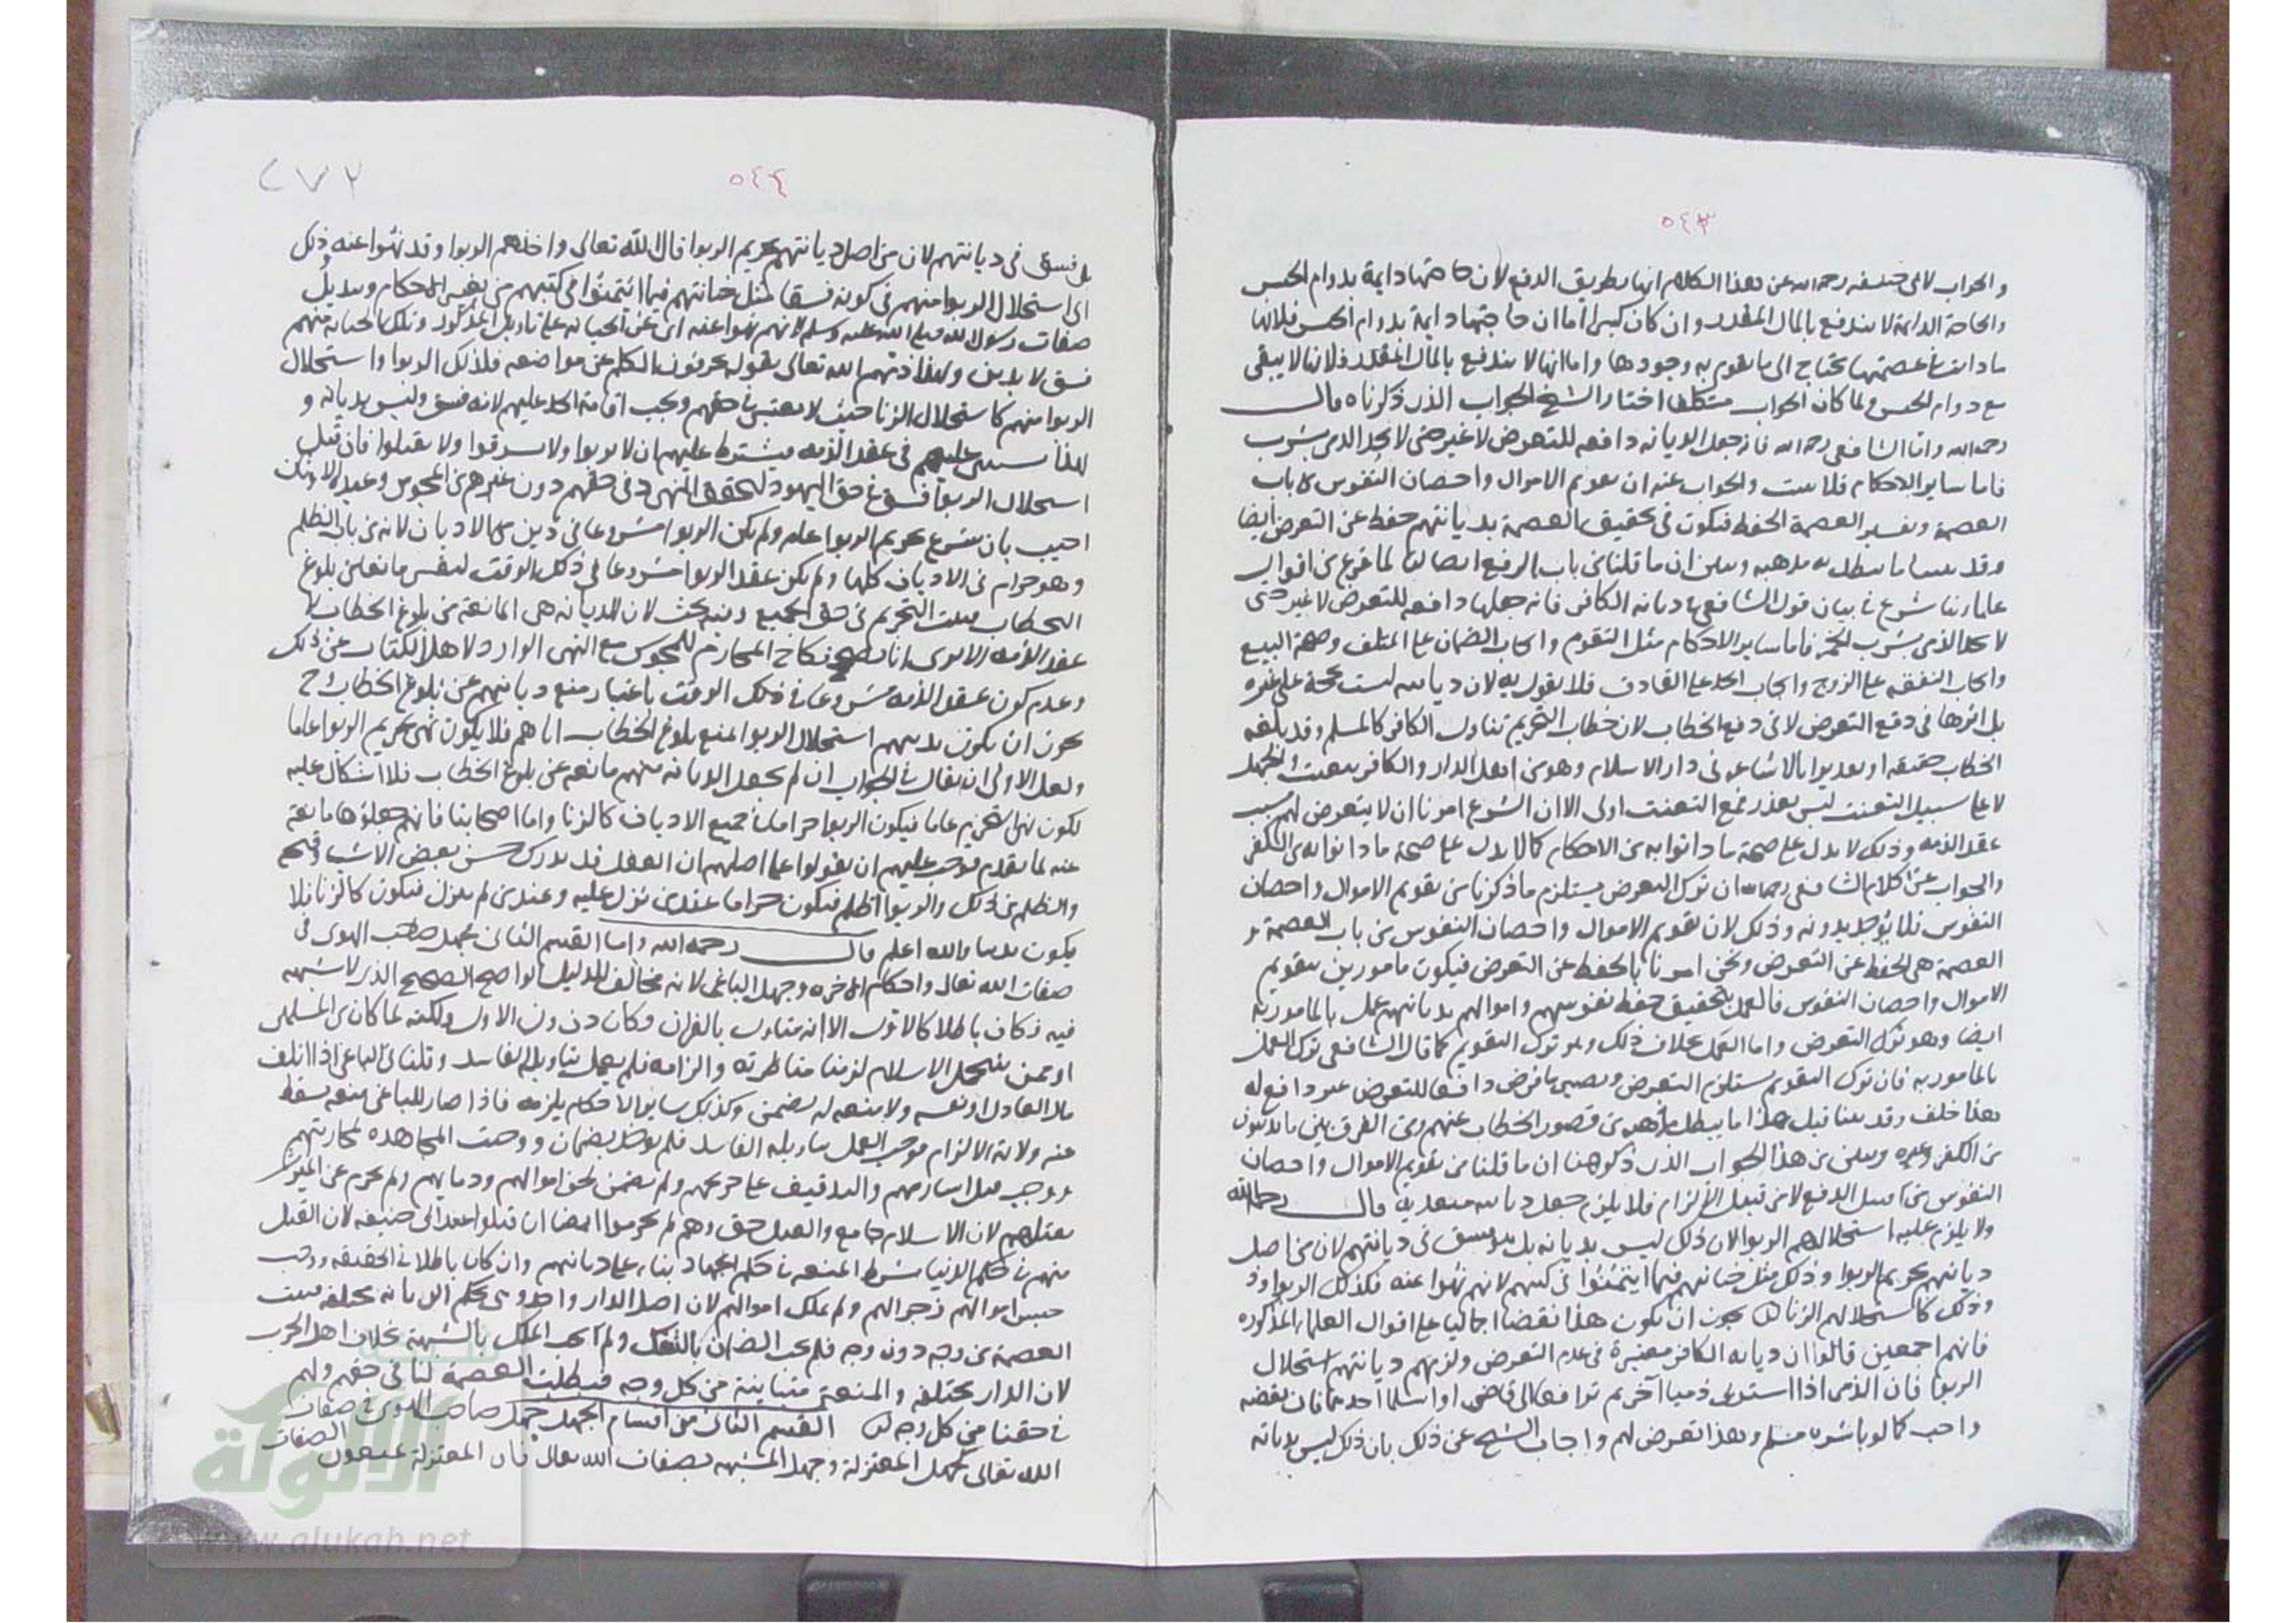 ٥٤٣
والجواب لابي حنيفه رحمه الله عن هذا الكلام انها بطريق الدفع لان حاجتها دايمة بدوام الحبس
والحاجة الدايمة لا يندفع بالمال المقدر وان كان كثيرا اما ان حاجتها دايمة بدوام الحبس فلانها
مادامت في عصمتها يحتاج الى ما يقوم به وجودها واما انها لا يندفع بالمال المقدر فلانها لا يبقى
مع دوام الحبس ولما كان الجواب متكلفا اختار الشيخ الجواب الذي ذكرناه قال
رحمه الله واما الشافعي رحمه الله فانه جعل الديانه دافعه للتعرض لا غير حتى لا يحد الذمي بشرب
فاما ساير الاحكام فلا يثبت والجواب عنه ان تقويم الاموال واحصان النفوس من باب
العصمة وتفسير العصمة الحفظ فيكون في تحقيق العصمة بديانتهم حفظ عن التعرض ايضا
وقد بينا ما يبطل به مذهبه وتبين ان ما قلنا من باب الدفع ايضا لما فرغ من اقوال
علمائنا شرع في بيان قول الشافعي في ديانه الكافر فانه جعلها دافعه للتعرض لا غير حتى
لا يحد الذمي بشرب الخمر فاما ساير الاحكام مثل التقوم وايجاب الضمان على المتلف وصحة البيع
وايجاب النفقه على الزوج وايجاب الحد على القاذف فلا يقول به لان ديانته ليست بحجة على غيره
بل اثرها في دفع التعرض لا في دفع الخطاب لان خطاب التحريم تناول الكافر كالمسلم وقد بلغه
الخطاب حقيقه او تقديرا بالاشاعه في دار الاسلام وهو من اهل الدار والكافر يتعنت والجهل
لا على سبيل التعنت ليس بعذر فمع التعنت اولى الا ان الشرع امرنا ان لا يتعرض لهم بسبب
عقد الذمه وذلك لا يدل على صحة ما دانوا به من الاحكام كما لا يدل على صحة ما دانوا به من الكفر
والجواب عن كلام الشافعي رحمه الله ان ترك التعرض يستلزم ما ذكرنا من تقويم الاموال واحصان
النفوس فلا يوجد بدونه وذلك لان تقويم الاموال واحصان النفوس من باب العصمة و
العصمة هي الحفظ عن التعرض ونحن امرنا بالحفظ عن التعرض فيكون مامورين بتقويم
الاموال واحصان النفوس فالعمل بتحقيق حفظ نفوسهم واموالهم بديانتهم عمل بالمامور به
ايضا وهو ترك التعرض واما العمل بخلاف ذلك وهو ترك التقويم كما قال الشافعي ترك العمل
بالمامور به فان ترك التقويم يستلزم التعرض ويصير ما فرض دافعا للتعرض غير دافع له
هذا خلف وقد بينا قبل هذا ما يبطل مذهبه من قصور الخطاب عنهم ومن الفرق بين ما يدينون
من الكفر وغيره وتبين من هذا الجواب الذي ذكرهنا ان ما قلنا من تقويم الاموال واحصان
النفوس من قبيل الدفع لا من قبيل الالزام فلا يلزم جعل ديانته متعدية قال رحمه الله
ولا يلزم عليه استحلالهم الربوا لان ذلك ليس بديانه بل هو فسق في ديانتهم لان من اصل
ديانتهم تحريم الربوا وذلك مثل خيانتهم فيما ائتمنوا في كتبهم لانهم نهوا عنه فكذلك الربوا
وذلك كاستحلالهم الزنا يجوز ان يكون هذا نقضا اجماليا على اقوال العلماء المذكوره
فانهم اجمعين قالوا ان ديانه الكافر معتبرة في عدم التعرض ولزمهم ديانتهم استحلال
الربوا فان الذمي اذا استربى ذميا آخر ثم ترافعا الى قاضي او اسلم احدهما فان نقضه
واجب كما لو باشره مسلم وهذا تعرض لهم واجاب الشيخ عن ذلك بان ذلك ليس بديانه
٥٤٤
٢٧٢
بل فسق في ديانتهم لان من اصل ديانتهم تحريم الربوا قال الله تعالى واخذهم الربوا وقد نهوا عنه ذلك
اي استحلال الربوا منهم في كونه فسقا مثل خيانتهم فيما ائتمنوا في كتبهم من تغيير الاحكام وتبديل
صفات رسول الله صلى الله عليه وسلم لانهم نهوا عنه اي عن الخيانه على تاويل المذكور وتلك الخيانه منهم
فسق لا بدين ولهذا ذمهم الله تعالى بقوله يحرفون الكلم عن مواضعه فلذلك الربوا واستحلال
الربوا منهم كاستحلال الزنا حيث لا يعتبر في حقهم ويجب اقامة الحد عليهم لانه فسق وليس بديانه و
لهذا يستثنى عليهم في عقد الذمه فيشترط عليهم ان لا يربوا ولا يسرقوا ولا يقتلوا فان قيل
استحلال الربوا فسق في حق اليهود لتحقق النهي في حقهم دون غيرهم من المجوس وعبدة الاوثان
اجيب بان شرع تحريم الربوا عام ولم يكن الربوا مشروعا في دين من الاديان لانه من باب الظلم
وهو حرام في الاديان كلها ولم يكن عقد الربوا مشروعا في ذلك الوقت ليفسر مانعا من بلوغ
الخطاب فيثبت التحريم في حق الجميع وفيه بحث لان الديانه هي المانعة من بلوغ الخطاب لا
عقد الذمه الا يرى انا نصحح نكاح المحارم للمجوس مع النهي الوارد لاهل الكتاب عن ذلك
وعدم كون عقد الذمه مشروعا في ذلك الوقت باعتبار منع ديانتهم عن بلوغ الخطاب ح
يجوز ان يكون تدينهم استحلال الربوا لمنع بلوغ الخطاب اياهم فلا يكون نهي تحريم الربوا عاما
ولعل الاولى ان يقال في الجواب ان لم يجعل الديانه منهم مانعه عن بلوغ الخطاب فلا اشكال عليه
لكون نهي التحريم عاما فيكون الربوا حراما في جميع الاديان كالزنا واما اصحابنا فانهم جعلوها مانعة
عنه لما تقدم فوجب عليهم ان يقولوا على اصلهم ان العقل قد يدرك حسن بعض الاشياء وقبحه
والظلم من ذلك والربوا ظلم فيكون حراما عند من نزل عليه وعند من لم ينزل فيكون كالزنا فلا
يكون بدينا والله اعلم قال رحمه الله واما القسم الثاني فجهل صاحب الهوى في
صفات الله تعالى واحكام الاخره وجهل الباغي لانه مخالف للدليل الواضح الصحيح الذي لا شبهه
فيه فكان باطلا كالاول الا انه متاول بالقران فكان دون الاول ولكنه لما كان من المسلمين
او ممن ينتحل الاسلام لزمنا مناظرته والزامه فلم يعمل بتاويله الفاسد وقلنا في الباغي اذا اتلف
مال العادل او نفسه ولا منعه له يضمن وكذلك ساير الاحكام يلزمه فاذا صار للباغي منعه سقط
عنه ولاية الالزام فوجب العمل بتاويله الفاسد فلم يوخذ بضمان ووجبت المجاهده لمحاربتهم
ووجب قتل اسارهم والتدفيف على جريحهم ولم نضمن نحن اموالهم ودمايهم ولم نحرم عن الميراث
بقتلهم لان الاسلام جامع والقتل حق وهم لم يحرموا ايضا ان قتلوا عند ابي حنيفه لان القتل
منهم في حكم الدنيا بشرط المنعه في حكم الجهاد بناء على ديانتهم وان كان باطلا في الحقيقه ووجب
حبس اموالهم زجرا لهم ولم نملك اموالهم لان اصل الدار واحده وهي بحكم الديانه مختلفه فيثبت
العصمة من وجه دون وجه فلم يجب الضمان بالشك ولم يجب الملك بالشبهة بخلاف اهل الحرب
لان الدار مختلفه والمنعة متباينة من كل وجه فبطلت العصمة لنا في حقهم ولهم
في حقنا من كل وجه القسم الثاني من اقسام الجهل جهل صاحب الهوى في صفات
الله تعالى كجهل المعتزلة وجهل المشبهه بصفات الله تعالى فان المعتزلة يمنعون الصفات
الألوكة
www.alukah.net